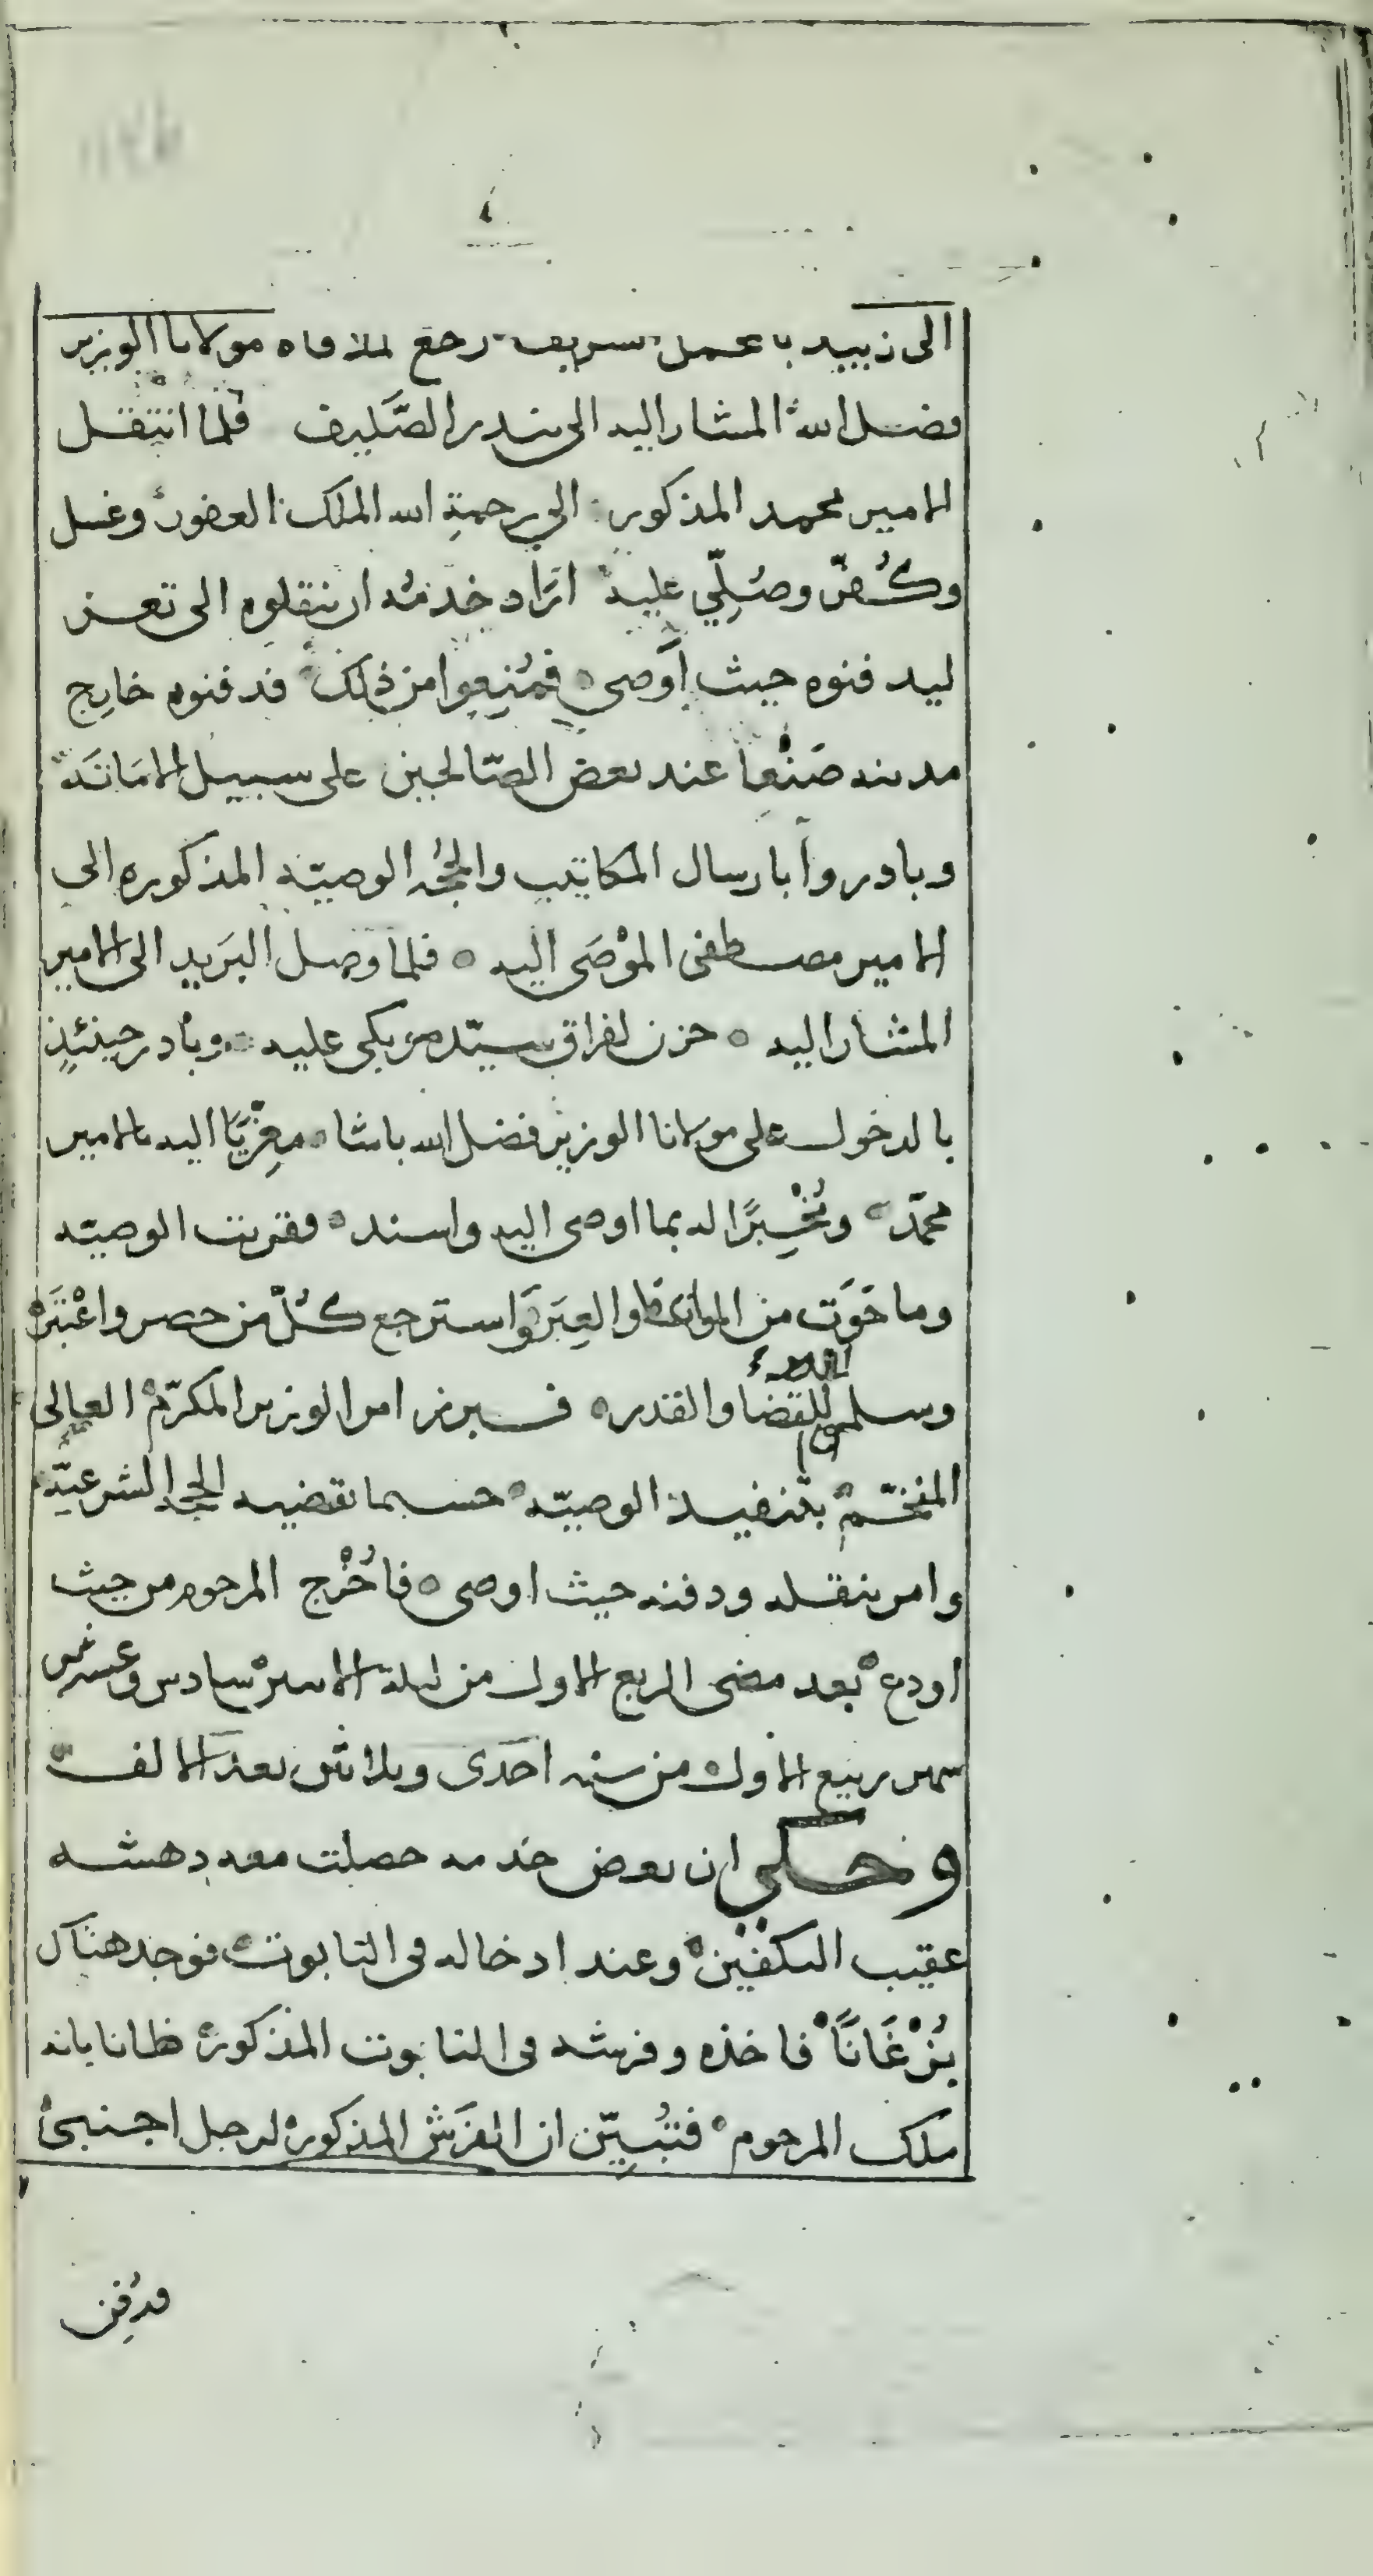 الى زبيد باعمل سريف رجع لملاقاه مولانا الوزير
فضل الله المشار اليه الى بندر الصَّليف فلما انتقل
الامير محمد المذكور الي رحمةِ الله الملك الغفور وغسل
وكُفّن وصُلِّي عليه ارَاد خدمُه ان ينقلوه الى تعز
ليدفنوه حيث اَوصى فمُنِعوا من ذلك فدفنوه خارِج
مدينه صَنْعا عند بعض الصّالحين على سبيل الامَانَة
وبادروا بارسال المكاتيب والحُجّه الوصيّه المذكوره الى
الامير مصطفى الموْصَى اليه ه فلما وصل البَريد الى الامير
المشار اليه ه حزن لفراق سيّده وبكى عليه وبادر حينئِذٍ
بالدخول على مولانا الوزير فضل الله باشا معِزّيًا اليه بالامير
محمّد ومُخْبِرًا له بما اوصى اليه واسند ه فقريت الوصيّه
وما حَوَت من المواعظ والعِبَر وَاسترجع كُلّ من حضر واعْتبَرَ
وسلم للقضا والقدر ه فبرز امر الوزير المكرّم العالى
المفخّم بتنفيذ الوصيّه حسبما تقضيه الحجه الشرعيّة
وامر بنقله ودفنه حيث اوصى ه فاُخْرج المرحوم من حيث
اودع بعد مضى الربع الاول من ليلة الاثنين سادس وعشرين
شهر ربيع الاول من سنه احَدى وثلاثين بعد الالف
وحكي ان بعض خدمه حصلت معه دهشه
عقيب التكفين وعند ادخاله فى التابوت فوجد هناك
بُرْغَانًا فاخذه وفرشه فى التابوت المذكور ظانا بانه
ملك المرحوم فتُبيّن ان الفرَش المذكور لرجل اجنبى
فدُفِن